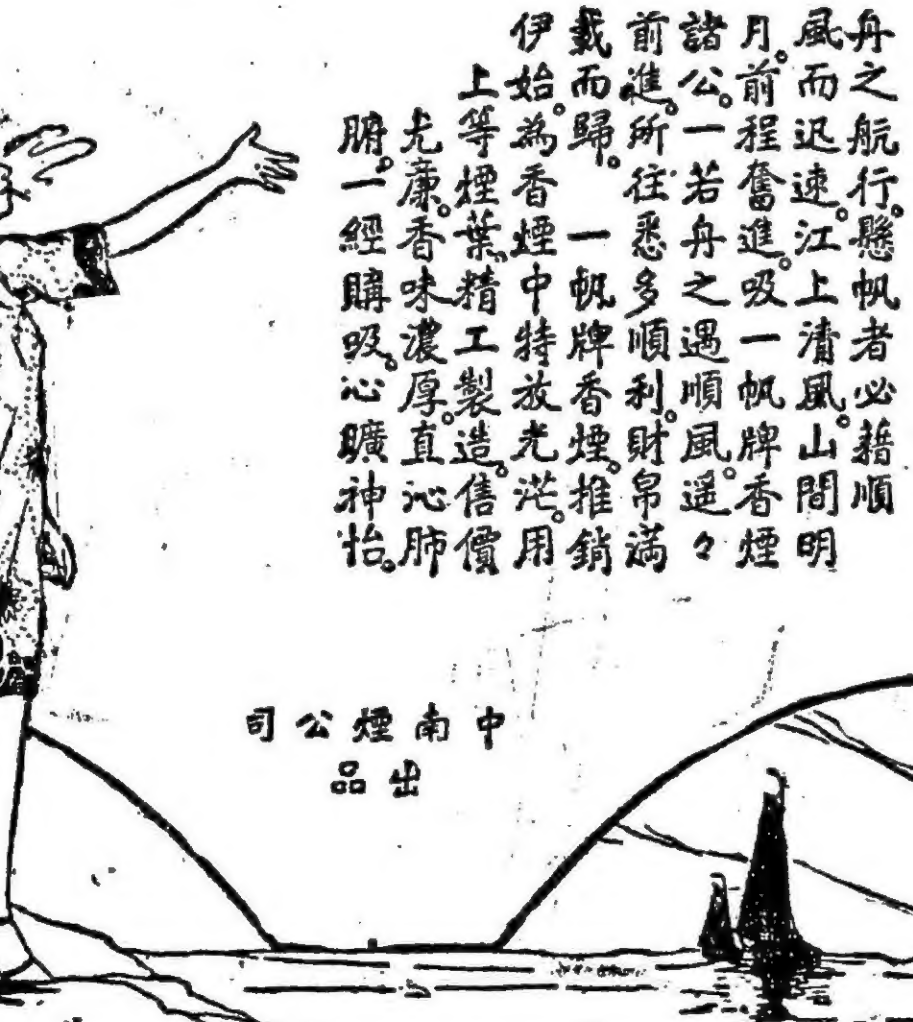 舟之航行。懸帆者必藉順
風而迅速。江上清風。山間明
月。前程奮進。吸一帆牌香煙
諸公。一若舟之遇順風。遥々
前進。所往悉多順利。財帛滿
載而歸。 一帆牌香煙。推銷
伊始。為香煙中特放光茫。用
上等煙葉。精工製造。售價
尤廉。香味濃厚。直沁肺
腑。一經購吸。心曠神怡。
中南煙公司
出品